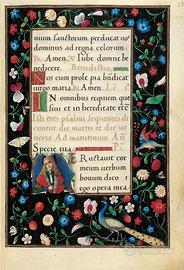 nium sanctorum perducat no
dominus ad regna celorum
Amen. Iube domne be
nedicere. Benedictio.
Nos cum prole pia benedicat
virgo maria. Amen.
IN omnibus requiem que
sivi et in hereditate
Isti tres psalmi sequentes di
cuntur die martis et die ve
neris. Ad matutinum
Specie tua
Eructauit cor
meum uerbum
bonum dico
ego opera mea